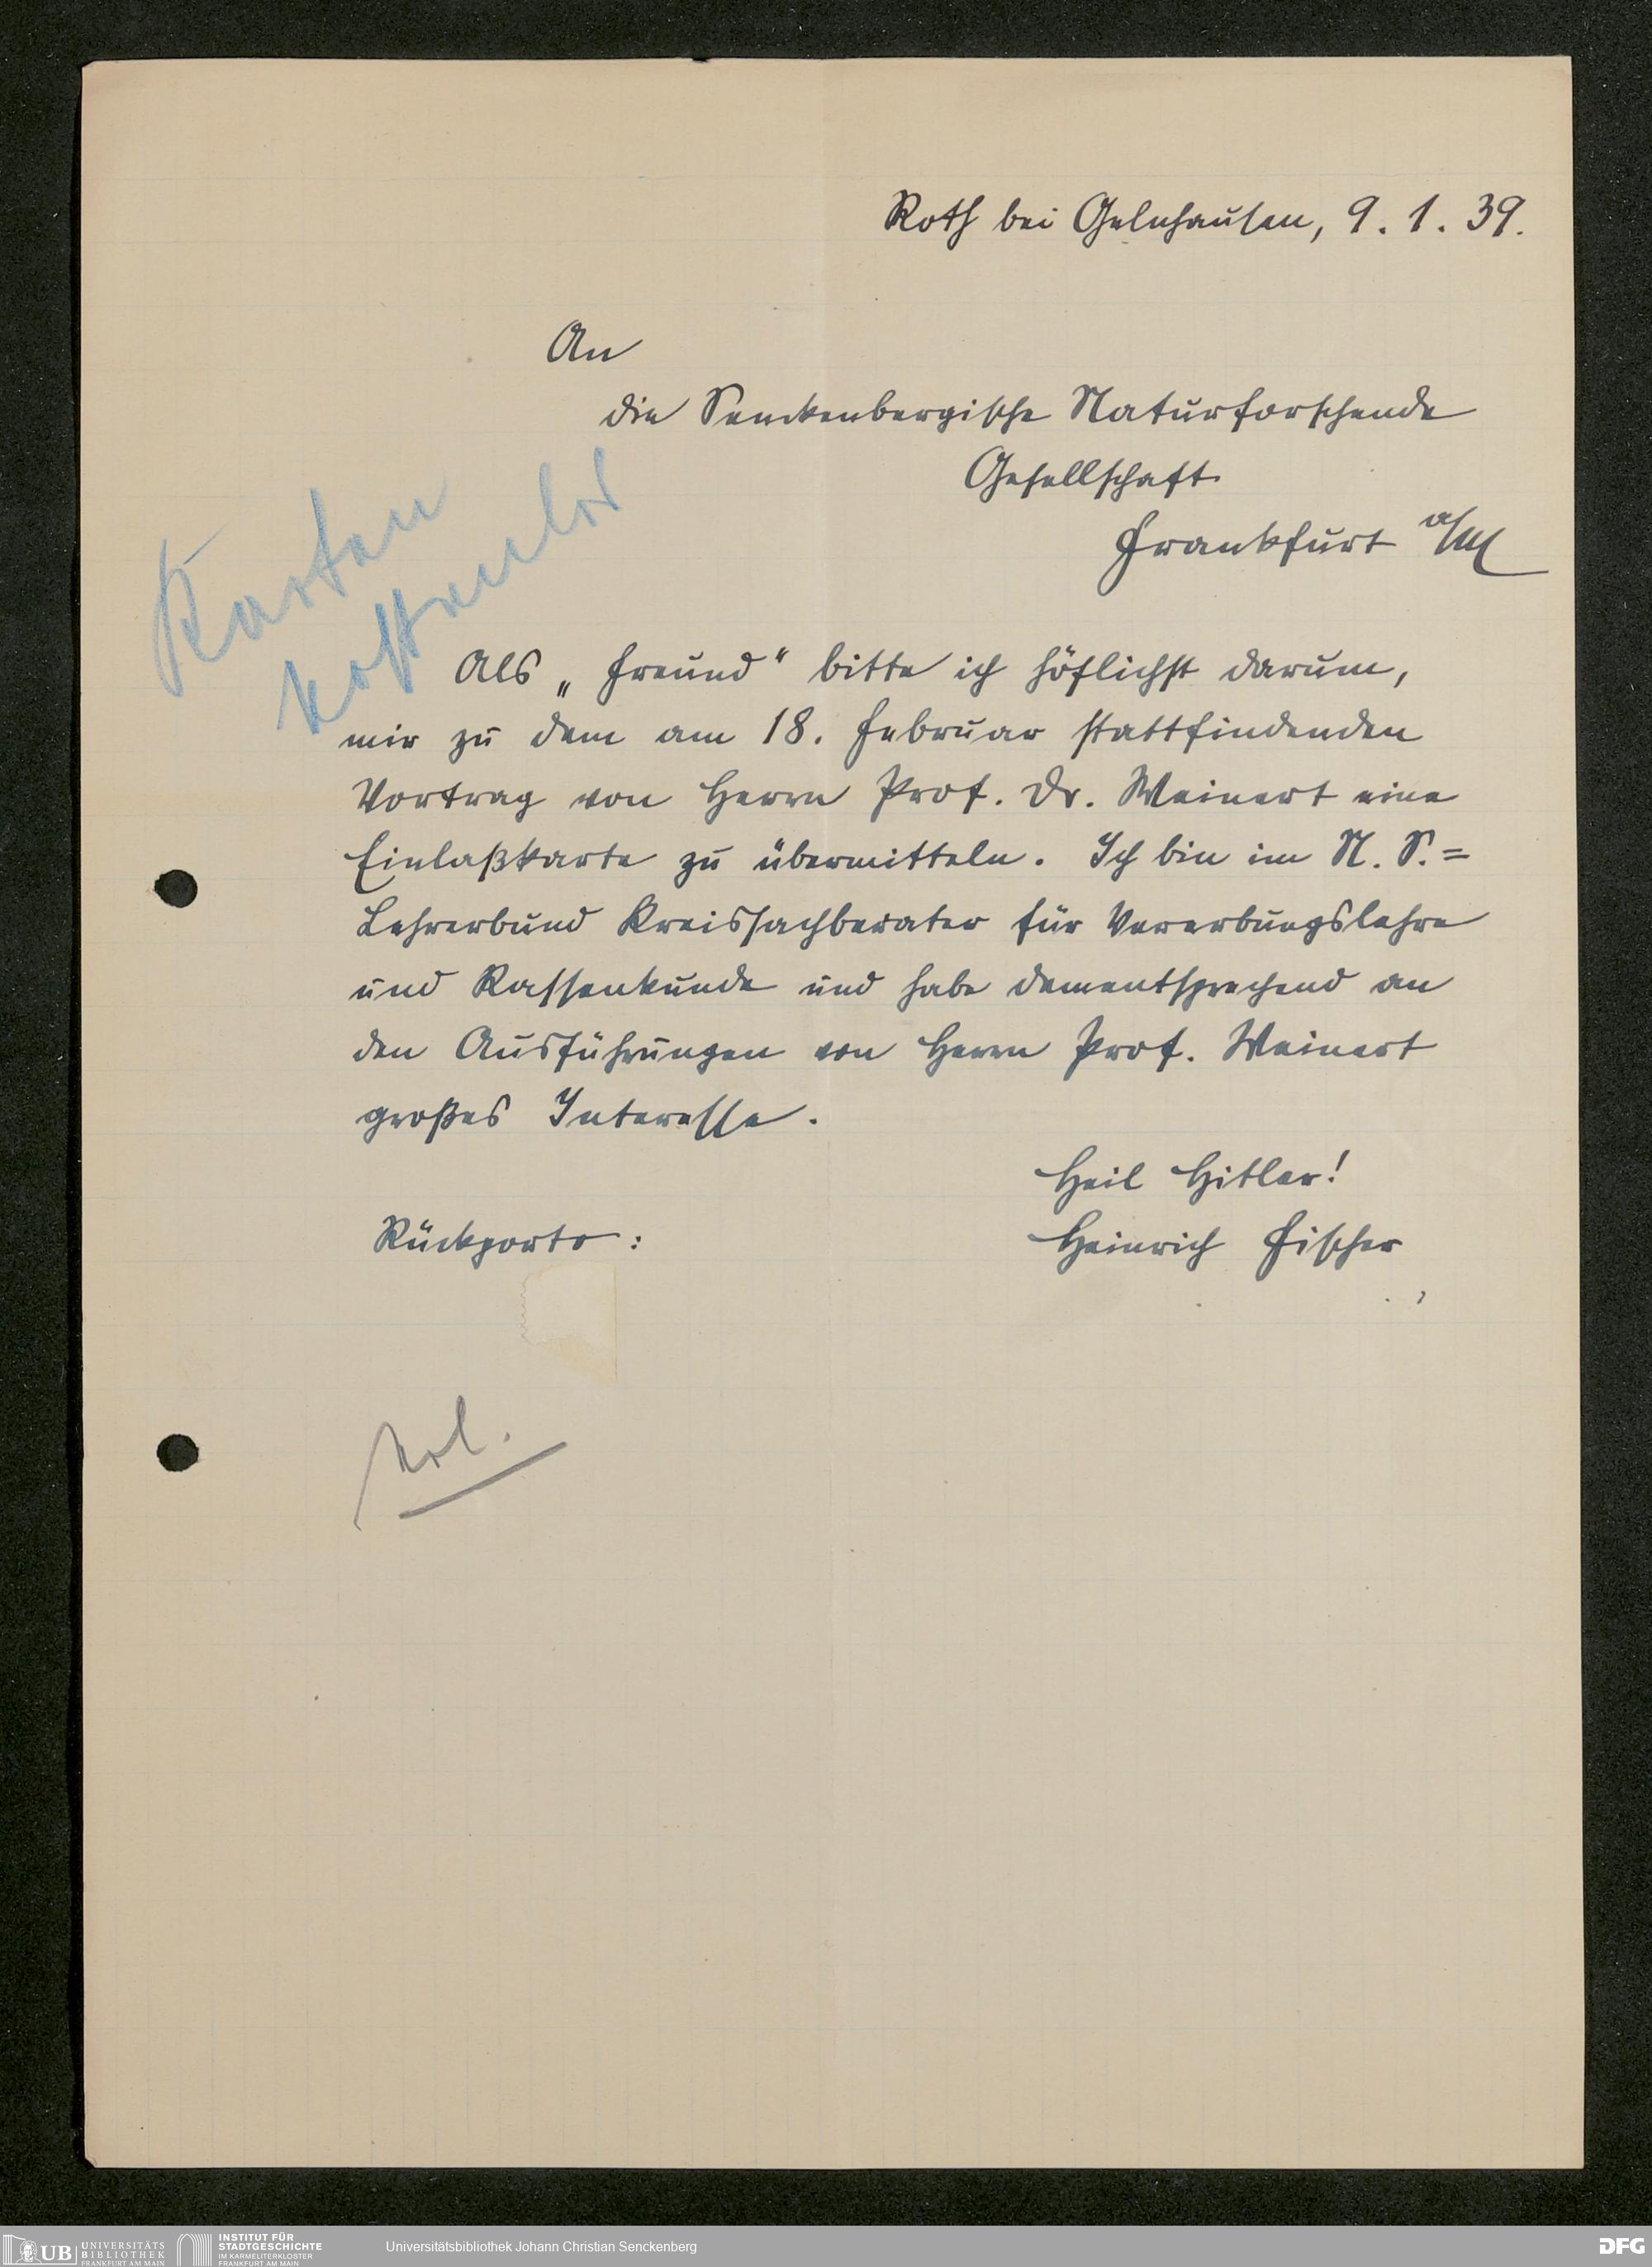 Roth bei Gelnhausen, 9. 1. 39.
An
die Senckenbergische Naturforschende
Gesellschaft
Frankfurt a/M
Karten
kostenlos
Als „Freund“ bitte ich höflichst darum,
mir zu dem am 18. Februar stattfindenden
Vortrag von Herrn Prof. Dr. Weinert eine
Einlaßkarte zu übermitteln. Ich bin im N. S.=
Lehrerbund Kreissachberater für Vererbungslehre
und Rassenkunde und habe dementsprechend an
den Ausführungen von Herrn Prof. Weinert
großes Interesse.
Heil Hitler!
Rückporto:
Heinrich Fischer
UB UNIVERSITÄTS
BIBLIOTHEK
FRANKFURT AM MAIN
INSTITUT FÜR
STADTGESCHICHTE
IM KARMELITERKLOSTER
FRANKFURT AM MAIN
Universitätsbibliothek Johann Christian Senckenberg
DFG